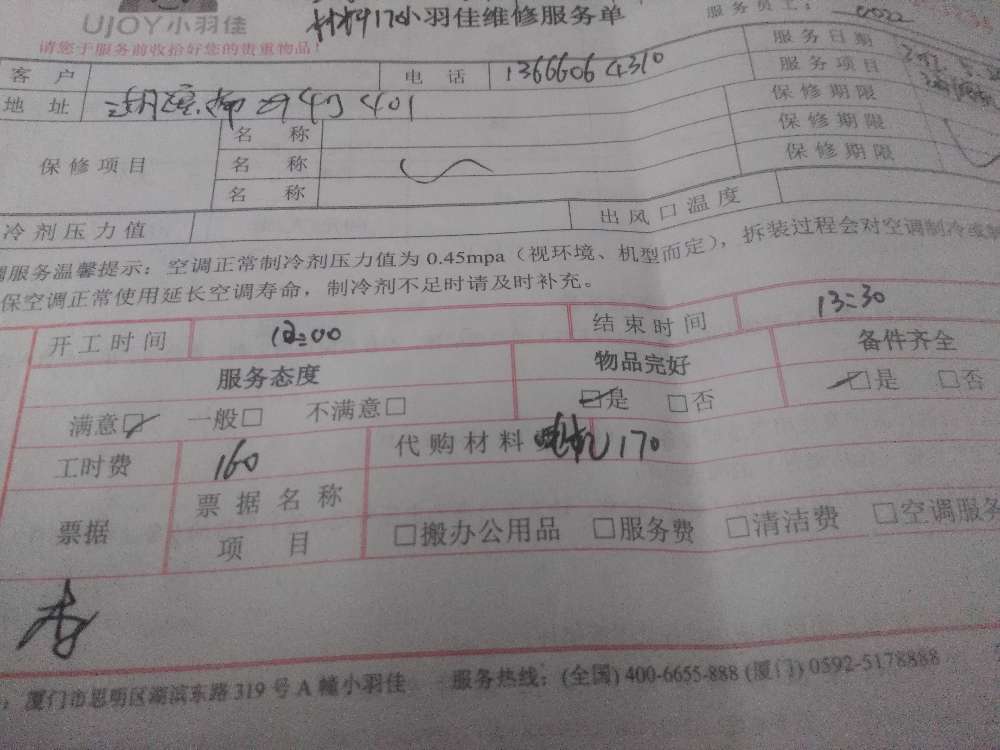 UJOY小羽佳
材料170 小羽佳维修服务单
服务员工：
请您于服务前收拾好您的贵重物品！
客户 电话 13666064310 服务日期
服务项目
地址 401 保修期限
保修项目 名称 保修期限
名称 保修期限
名称
冷剂压力值 出风口温度
调服务温馨提示：空调正常制冷剂压力值为 0.45mpa（视环境、机型而定），拆装过程会对空调制冷或
保空调正常使用延长空调寿命，制冷剂不足时请及时补充。
开工时间 12:00 结束时间 13:30
服务态度 物品完好 备件齐全
满意□ 一般□ 不满意□ □是 □否 □是 □否
工时费 160 代购材料 170
票据 票据名称
项目 □搬办公用品 □服务费 □清洁费 □空调服务
：厦门市思明区湖滨东路 319 号 A 幢小羽佳 服务热线：(全国) 400-6655-888 (厦门) 0592-5178888